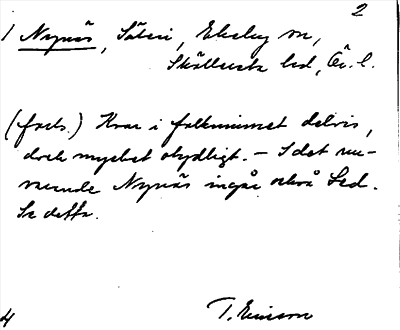 2
1 Nynäs, Säteri, Ekeby sn,
Skyllersta hd, Ör. l.
(forts.) Kvar i folkminnet delvis,
dock mycket otydligt. – I det nu-
varande Nynäs ingår också Sed.
Se detta.
4 T. Ericsson